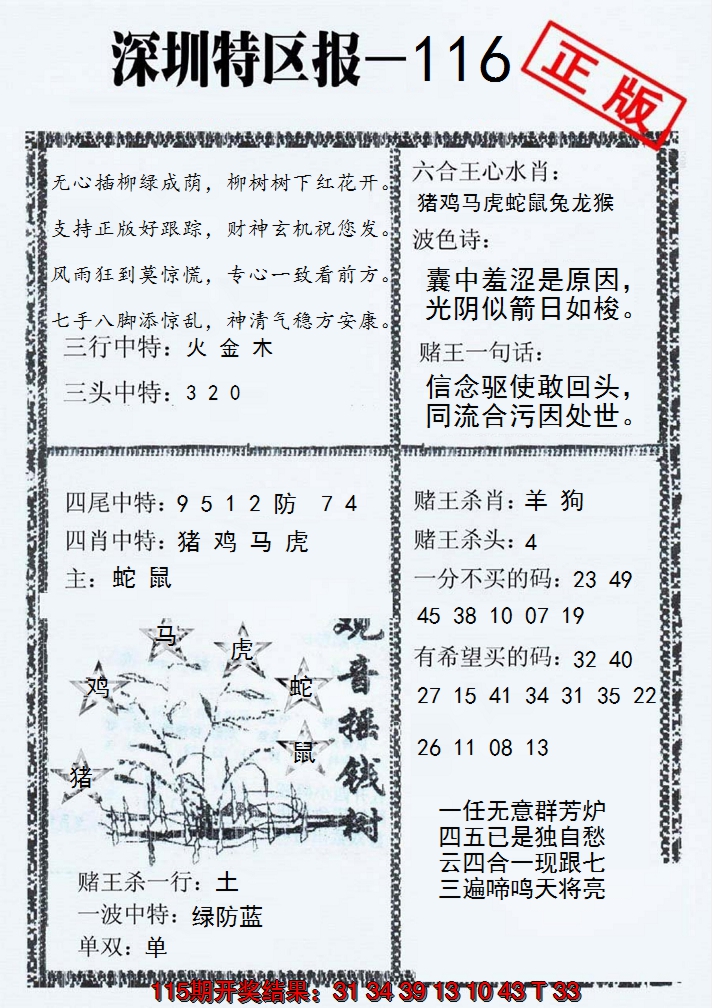 深圳特区报-116
正版
无心插柳绿成荫，柳树树下红花开。
支持正版好跟踪，财神玄机祝您发。
风雨狂到莫惊慌，专心一致看前方。
七手八脚添惊乱，神清气稳方安康。
三行中特：火 金 木
三头中特：3 2 0
六合王心水肖：
猪鸡马虎蛇鼠兔龙猴
波色诗：
囊中羞涩是原因，
光阴似箭日如梭。
赌王一句话：
信念驱使敢回头，
同流合污因处世。
四尾中特：9 5 1 2 防 7 4
四肖中特：猪 鸡 马 虎
主：蛇 鼠
马
虎
鸡
蛇
鼠
猪
观音摇钱树
赌王杀一行：土
一波中特：绿防蓝
单双：单
赌王杀肖：羊 狗
赌王杀头：4
一分不买的码：23 49
45 38 10 07 19
有希望买的码：32 40
27 15 41 34 31 35 22
26 11 08 13
一任无意群芳炉
四五已是独自愁
云四合一现跟七
三遍啼鸣天将亮
115期开奖结果：31 34 39 13 10 43 T 33